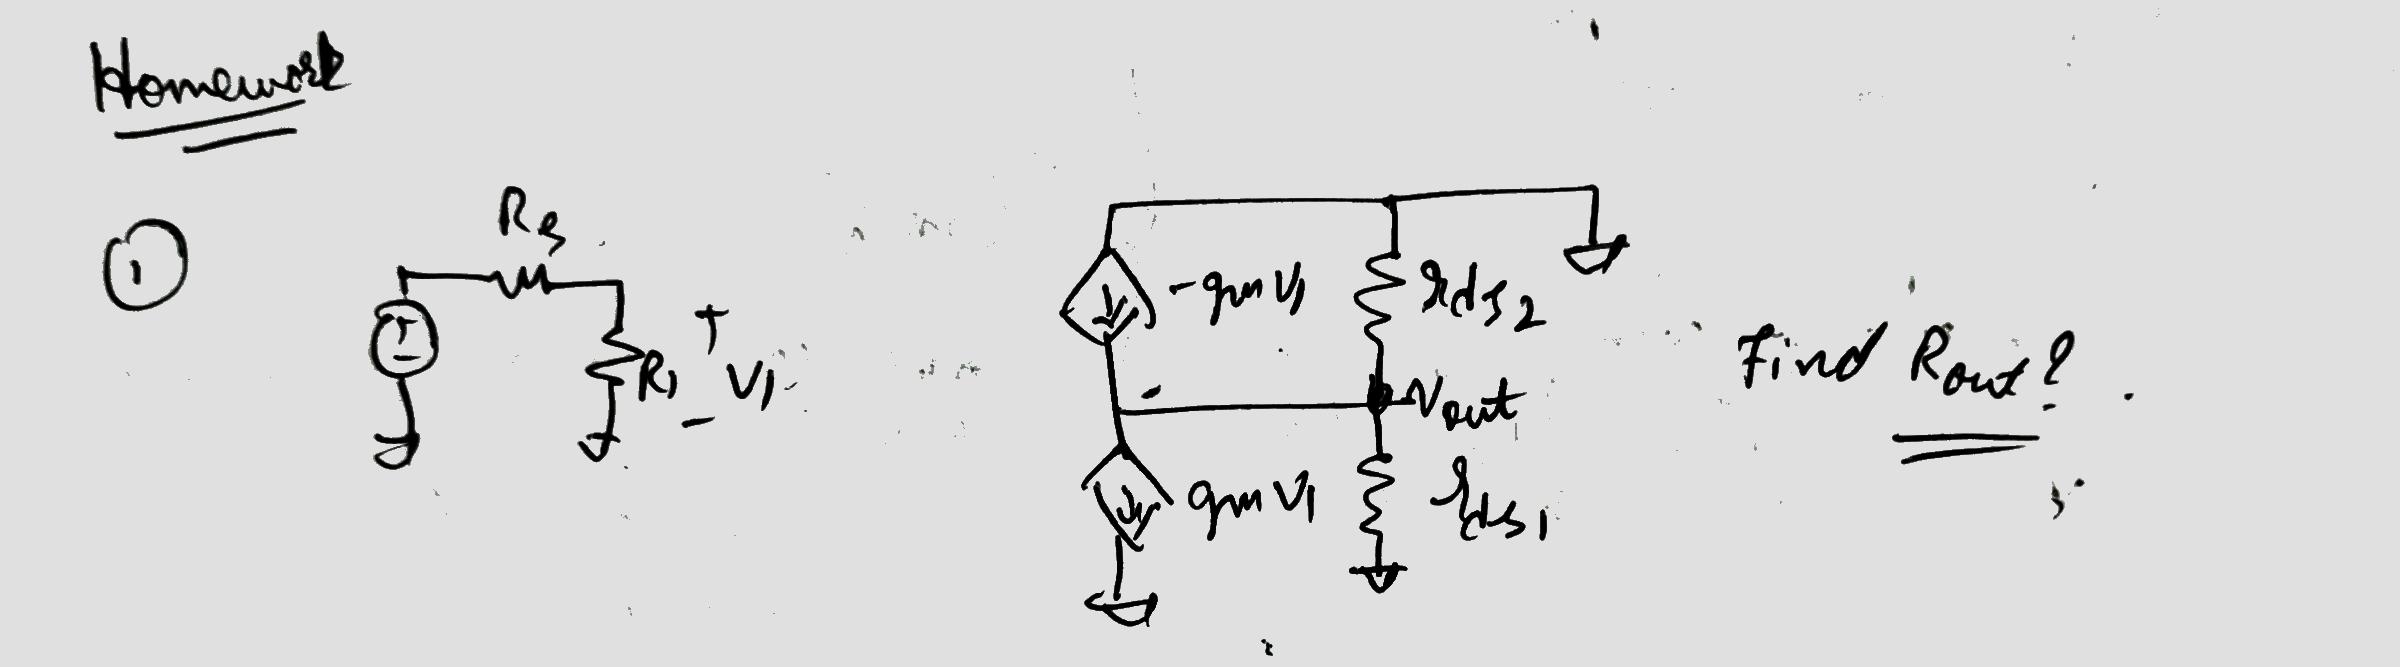 Homework
①
Rs
+
-
R1
+
V1
-
-gmV1
rds2
Vout
gmV1
rds1
Find Rout?